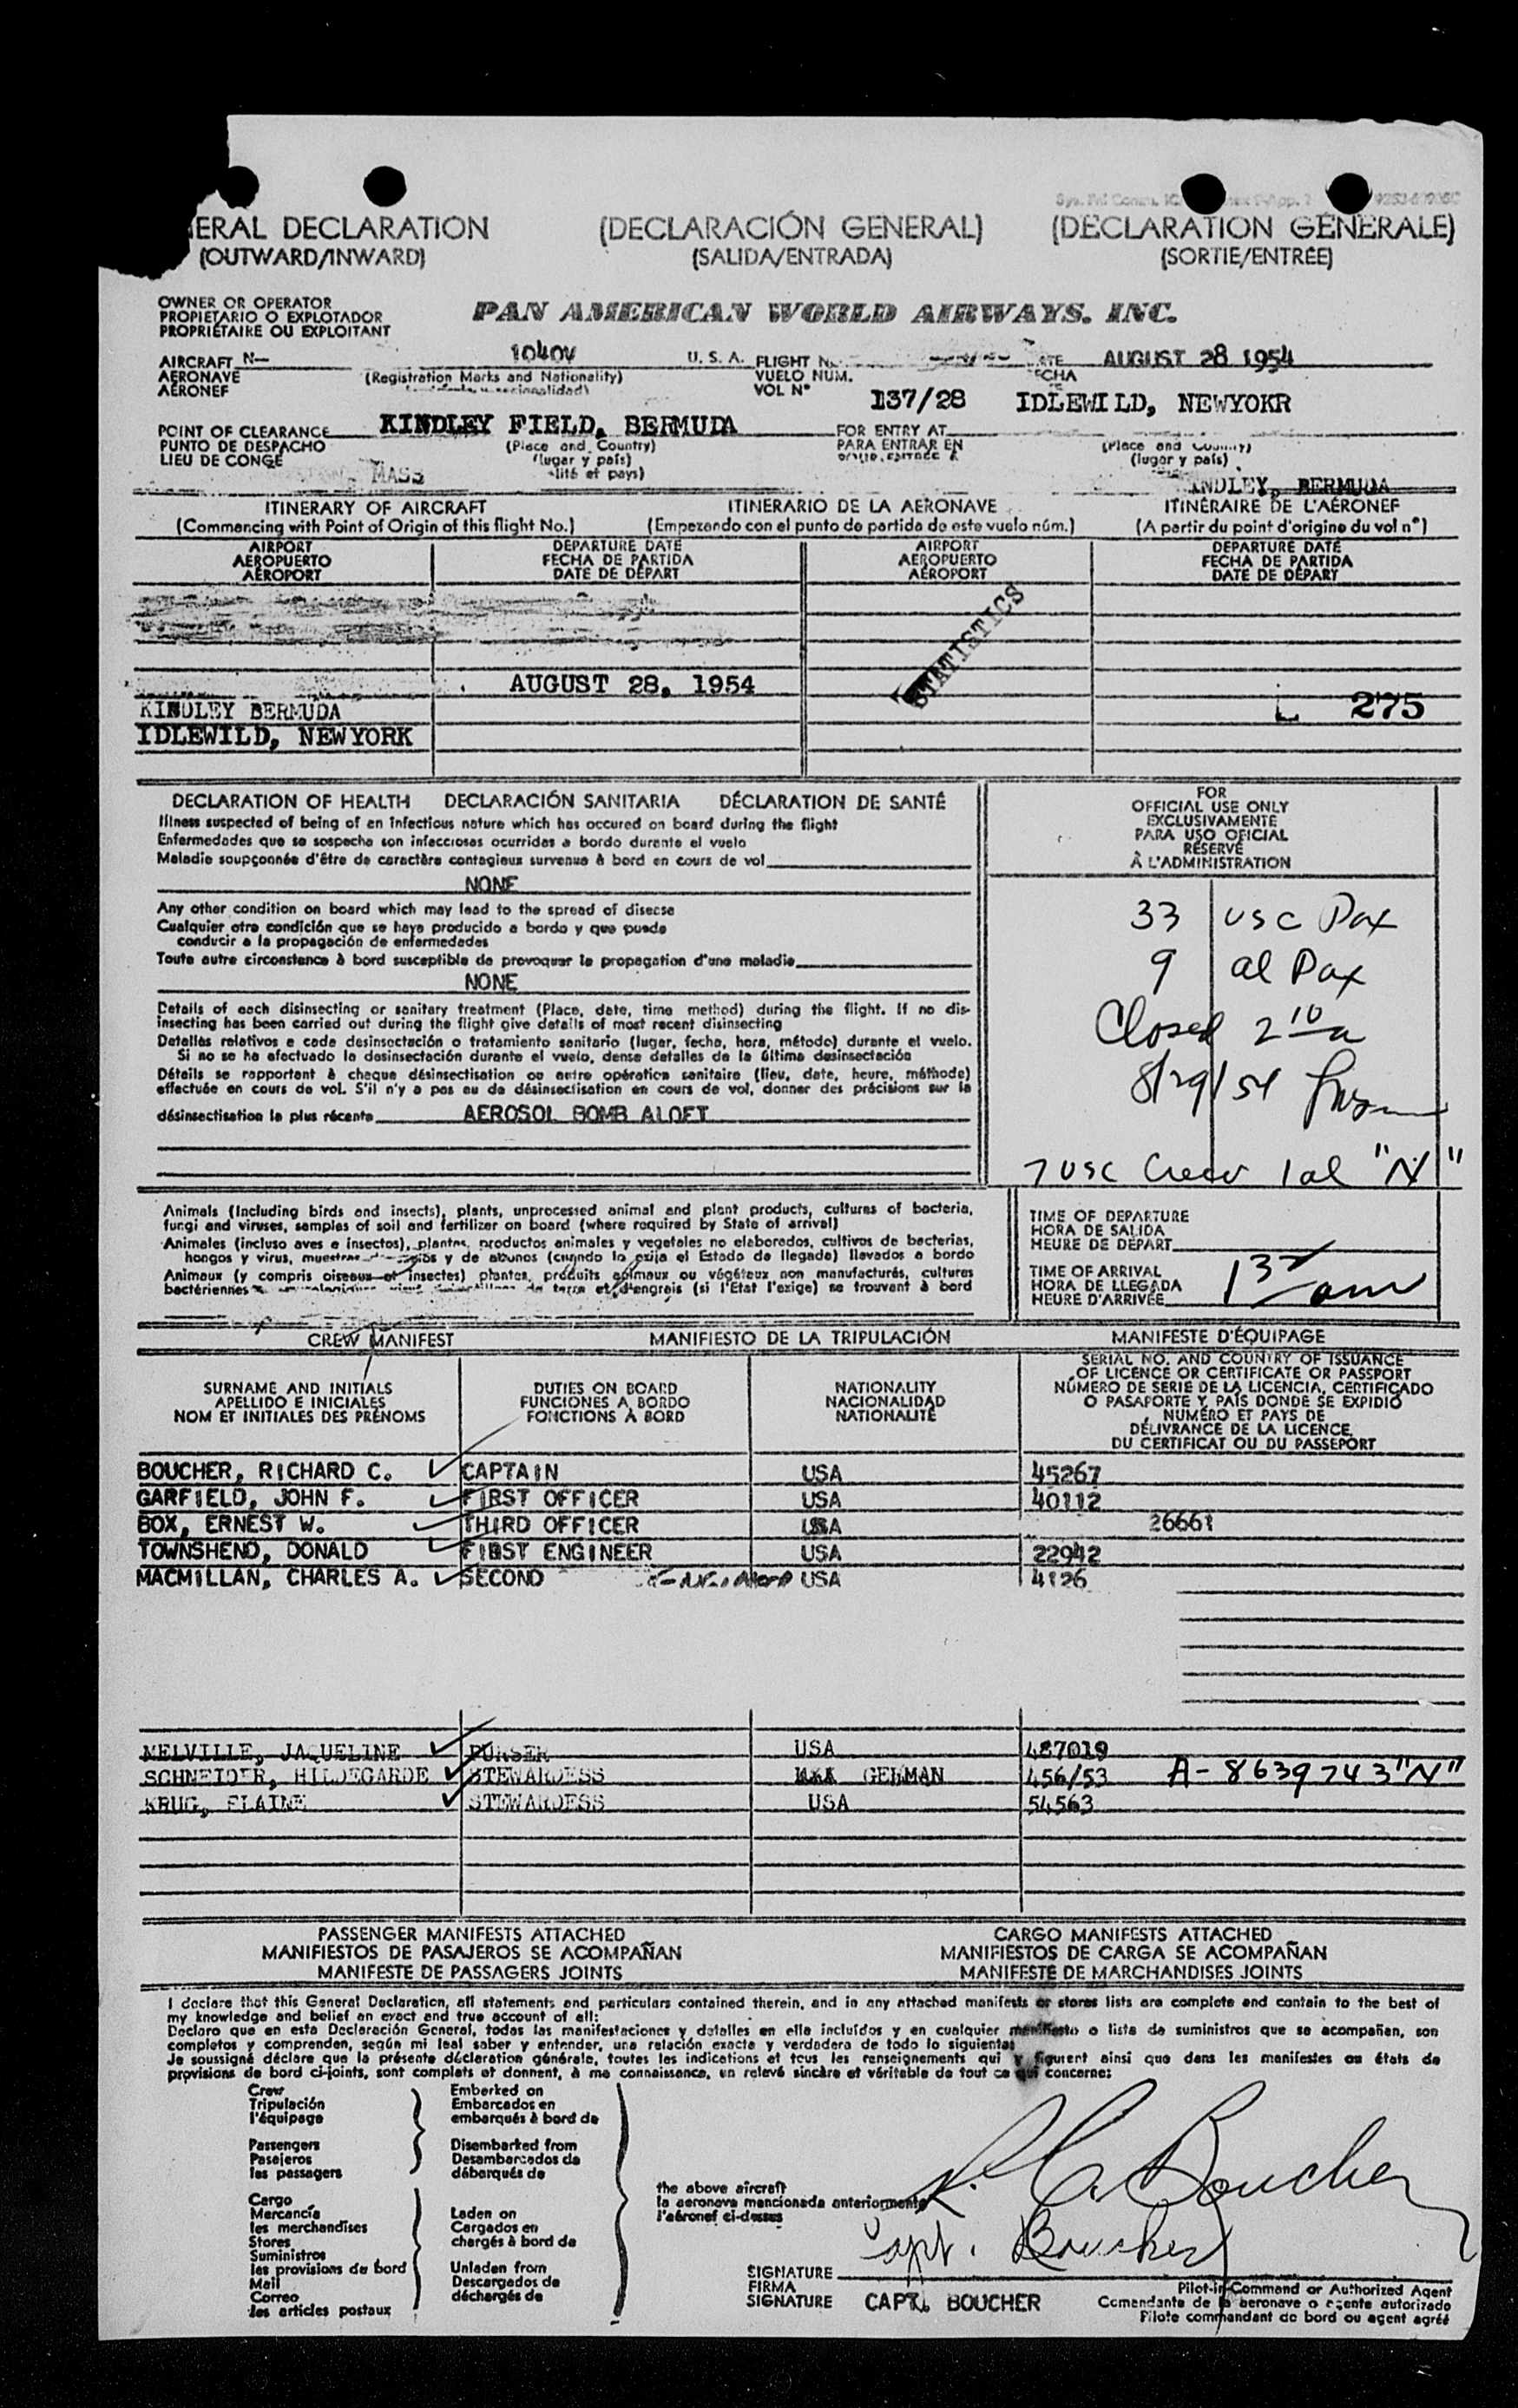 ERAL DECLARATION (DECLARACIÓN GENERAL) (DÉCLARATION GÉNÉRALE)
(OUTWARD/INWARD) (SALIDA/ENTRADA) (SORTIE/ENTRÉE)
OWNER OR OPERATOR
PROPIETARIO O EXPLOTADOR
PROPRIÉTAIRE OU EXPLOITANT
PAN AMERICAN WORLD AIRWAYS, INC.
AIRCRAFT N— 1040V U. S. A. FLIGHT AUGUST 28 1954
AERONAVE (Registration Marks and Nationality) VUELO NUM.
AÉRONEF VOL N°
137/28 IDLEWILD, NEWYOKR
POINT OF CLEARANCE KINDLEY FIELD, BERMUDA FOR ENTRY AT
PUNTO DE DESPACHO (Place and Country) PARA ENTRAR EN (Place and Country)
LIEU DE CONGÉ (lugar y país) (lugar y país)
MASS NDLEY, BERMUDA
ITINERARY OF AIRCRAFT ITINERARIO DE LA AERONAVE ITINÉRAIRE DE L'AÉRONEF
(Commencing with Point of Origin of this flight No.) (Empezando con el punto de partida de este vuelo núm.) (A partir du point d'origine du vol n°)
AIRPORT DEPARTURE DATE AIRPORT DEPARTURE DATE
AEROPUERTO FECHA DE PARTIDA AEROPUERTO FECHA DE PARTIDA
AÉROPORT DATE DE DÉPART AÉROPORT DATE DE DÉPART
STATISTICS
AUGUST 28, 1954
KINDLEY BERMUDA L 275
IDLEWILD, NEWYORK
DECLARATION OF HEALTH DECLARACIÓN SANITARIA DÉCLARATION DE SANTÉ
Illness suspected of being of an infectious nature which has occured on board during the flight
Enfermedades que se sospecha son infecciosas ocurridas a bordo durante el vuelo
Maladie soupçonnée d'être de caractère contagieux survenue à bord en cours de vol
NONE
Any other condition on board which may lead to the spread of disease
Cualquier otra condición que se haya producido a bordo y que pueda
conducir a la propagación de enfermedades
Toute autre circonstance à bord susceptible de provoquer la propagation d'une maladie
NONE
Details of each disinsecting or sanitary treatment (Place, date, time method) during the flight. If no dis-
insecting has been carried out during the flight give details of most recent disinsecting
Detalles relativos a cada desinsectación o tratamiento sanitario (lugar, fecha, hora, método) durante el vuelo.
Si no se ha efectuado la desinsectación durante el vuelo, dense detalles de la última desinsectación
Détails se rapportant à chaque désinsectisation ou autre opération sanitaire (lieu, date, heure, méthode)
effectuée en cours de vol. S'il n'y a pas eu de désinsectisation en cours de vol, donner des précisions sur la
désinsectisation la plus récente AEROSOL BOMB ALOFT
FOR
OFFICIAL USE ONLY
EXCLUSIVAMENTE
PARA USO OFICIAL
RÉSERVÉ
À L'ADMINISTRATION
33 USC Pax
9 al Pax
Closed 2 10 a
8/29/54
7 USC Crew 1 al "N"
Animals (Including birds and insects), plants, unprocessed animal and plant products, cultures of bacteria,
fungi and viruses, samples of soil and fertilizer on board (where required by State of arrival)
Animales (incluso aves e insectos), plantas, productos animales y vegetales no elaborados, cultivos de bacterias,
hongos y virus, muestras y de abonos (cuando lo exija el Estado de llegada) llevados a bordo
Animaux (y compris oiseaux et insectes) plantes, produits animaux ou végétaux non manufacturés, cultures
bactériennes de terre et d'engrais (si l'Etat l'exige) se trouvant à bord
TIME OF DEPARTURE
HORA DE SALIDA
HEURE DE DÉPART
TIME OF ARRIVAL
HORA DE LLEGADA
HEURE D'ARRIVÉE am
CREW MANIFEST MANIFIESTO DE LA TRIPULACIÓN MANIFESTE D'ÉQUIPAGE
SURNAME AND INITIALS
APELLIDO E INICIALES
NOM ET INITIALES DES PRÉNOMS
DUTIES ON BOARD
FUNCIONES A BORDO
FONCTIONS À BORD
NATIONALITY
NACIONALIDAD
NATIONALITÉ
SERIAL NO. AND COUNTRY OF ISSUANCE
OF LICENCE OR CERTIFICATE OR PASSPORT
NÚMERO DE SERIE DE LA LICENCIA, CERTIFICADO
O PASAPORTE Y PAÍS DONDE SE EXPIDIÓ
NUMÉRO ET PAYS DE
DÉLIVRANCE DE LA LICENCE,
DU CERTIFICAT OU DU PASSEPORT
BOUCHER, RICHARD C. CAPTAIN USA 45267
GARFIELD, JOHN F. FIRST OFFICER USA 40112
BOX, ERNEST W. THIRD OFFICER USA 26661
TOWNSHEND, DONALD FIRST ENGINEER USA 22942
MACMILLAN, CHARLES A. SECOND USA 4126
MELVILLE, JAQUELINE PURSER USA 487019
SCHNEIDER, HILDEGARDE STEWARDESS GERMAN 456/53 A-8639743 "N"
KRUG, ELAINE STEWARDESS USA 54563
PASSENGER MANIFESTS ATTACHED CARGO MANIFESTS ATTACHED
MANIFIESTOS DE PASAJEROS SE ACOMPAÑAN MANIFIESTOS DE CARGA SE ACOMPAÑAN
MANIFESTE DE PASSAGERS JOINTS MANIFESTE DE MARCHANDISES JOINTS
I declare that this General Declaration, all statements and particulars contained therein, and in any attached manifests or stores lists are complete and contain to the best of
my knowledge and belief an exact and true account of all:
Declaro que en esta Declaración General, todas las manifestaciones y detalles en ella incluídos y en cualquier manifiesto o lista de suministros que se acompañan, son
completos y comprenden, según mi leal saber y entender, una relación exacta y verdadera de todo lo siguiente:
Je soussigné déclare que la présente déclaration générale, toutes les indications et tous les renseignements qui y figurent ainsi que dans les manifestes ou états de
provisions de bord ci-joints, sont complets et donnent, à ma connaissance, un relevé sincère et véritable de tout ce qui concerne:
Crew
Tripulación
l'équipage
Passengers
Pasajeros
les passagers
Cargo
Mercancía
les merchandises
Stores
Suministros
les provisions de bord
Mail
Correo
les articles postaux
Embarked on
Embarcados en
embarqués à bord de
Disembarked from
Desembarcados de
débarqués de
Laden on
Cargados en
chargés à bord de
Unladen from
Descargados de
déchargés de
the above aircraft
la aeronave mencionada anteriormente
l'aéronef ci-dessus
R. C. Boucher
Capt. Boucher
SIGNATURE
FIRMA
SIGNATURE CAPT. BOUCHER
Pilot-in-Command or Authorized Agent
Comandante de la aeronave o agente autorizado
Pilote commandant de bord ou agent agréé